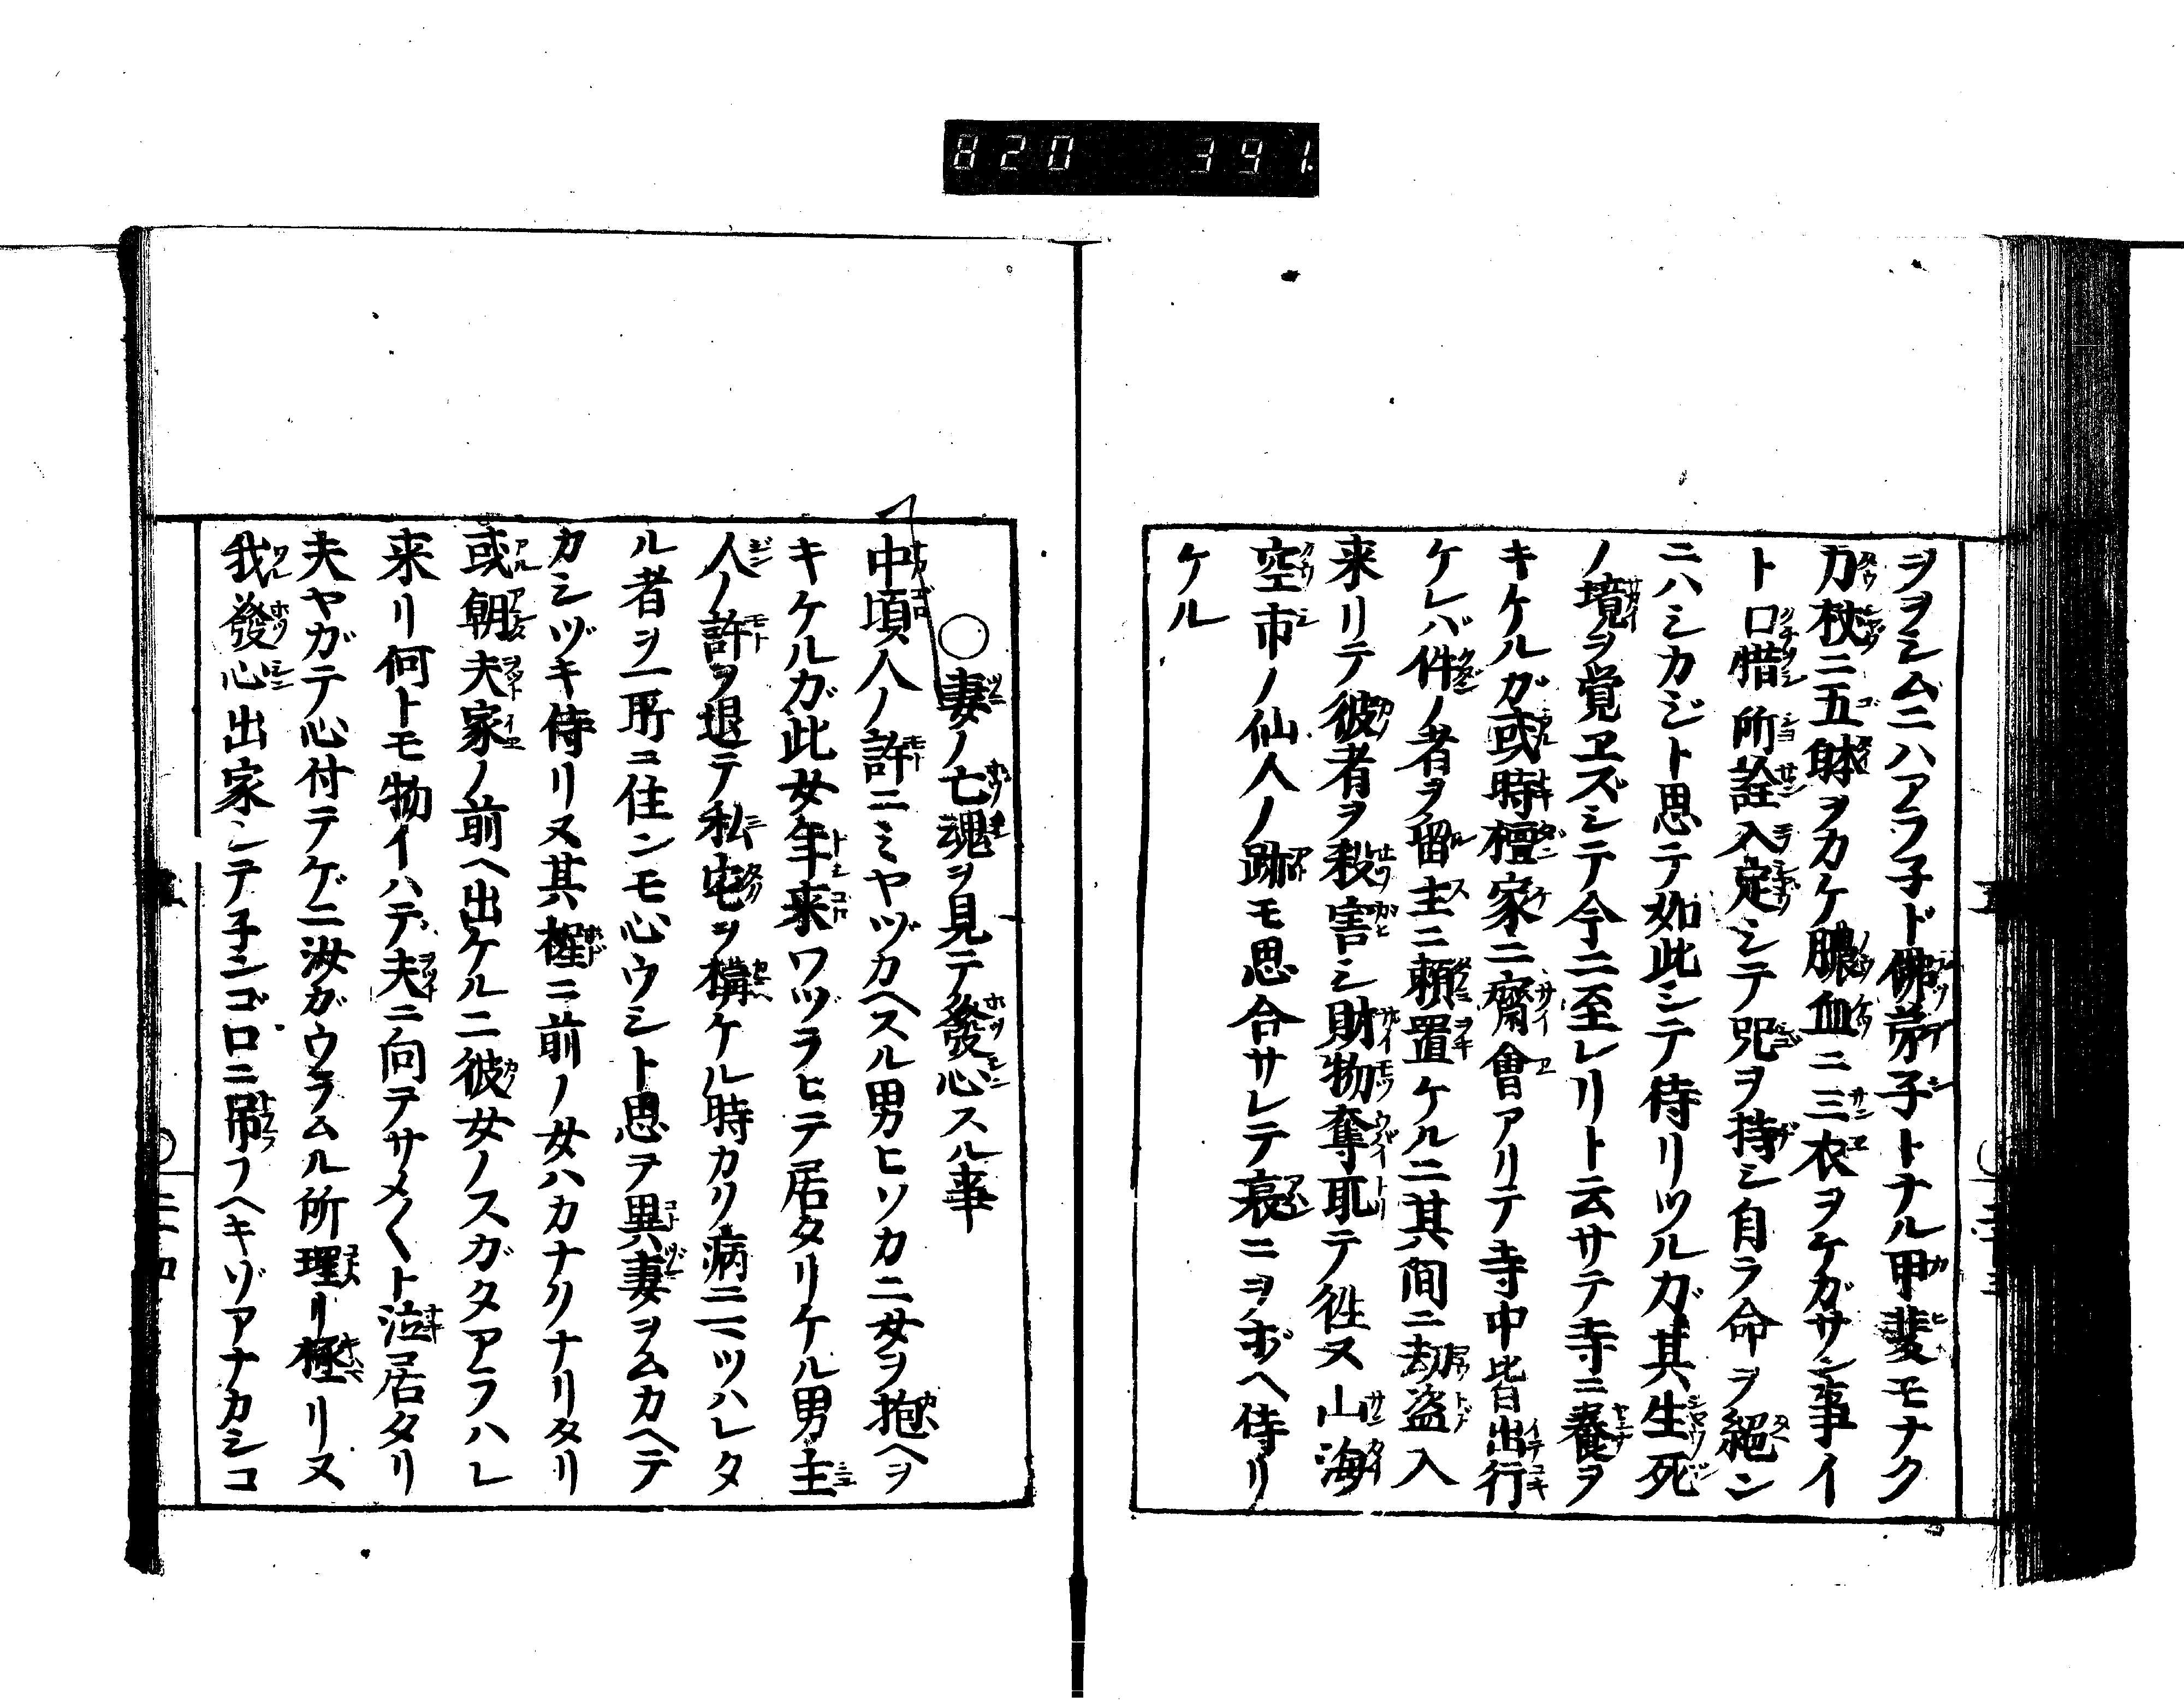 820 391
ヲヲシムニハアフ子ド佛弟子トナル甲斐モナク
刀杖ニ五躰ヲカケ膿血ニ三衣ヲケガサン事イ
ト口惜所詮入定シテ咒ヲ持シ自ラ命ヲ絕ン
ニハシカジト思テ如此シテ侍リツルガ其生死
ノ境ヲ覚ヱズシテ今ニ至レリト云サテ寺ニ養ヲ
キケルガ或時檀家ニ齋會アリテ寺中皆出行
ケレバ件ノ者ヲ留主ニ頼置ケルニ其間ニ劫盗入
来リテ彼者ヲ殺害シ財物奪取テ徃ヌ山海
空市ノ仙人ノ跡モ思合サレテ哀ニヲボヘ侍リ
ケル
〇妻ノ亡魂ヲ見テ發心スル事
中頃人ノ許ニミヤヅカヘスル男ヒソカニ女ヲ抱ヘヲ
キケルガ此女年来ワヅラヒテ居タリケル男主
人ノ許ヲ退テ私宅ヲ構ケル時カリ病ニマツハレタ
ル者ヲ一所ニ住ンモ心ウシト思テ異妻ヲムカヘテ
カシヅキ侍リヌ其程ニ前ノ女ハカナクナリタリ
或朝夫家ノ前ヘ出ケルニ彼女ノスガタアラハレ
来リ何トモ物イハデ夫ニ向テサメ〱ト泣居タリ
夫ヤガテ心付テゲニ汝ガウラムル所理リ極リヌ
我發心出家シテ子ンゴロニ吊フヘキゾアナカシコ